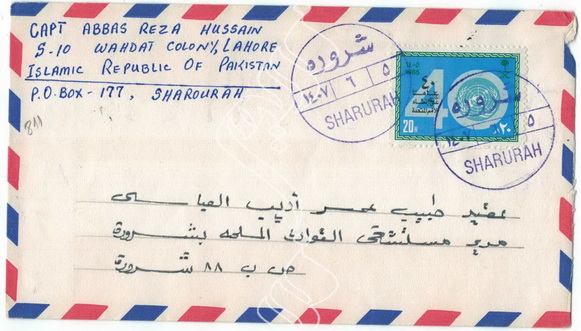 CAPT ABBAS REZA HUSSAIN
S-10 WAHDAT COLONY, LAHORE
ISLAMIC REPUBLIC OF PAKISTAN
P.O.BOX-177, SHAROURAH
811
شرورة
١٤٠٧ ٦ ٥
SHARURAH
شرورة
١٤٠٧ ٥
SHARURAH
40
٤٠
1985
20H
عقيد طبيب عمر أديب العباسي
مدير مستشفى القوات المسلحة بشرورة
ص ب ٨٨ شرورة